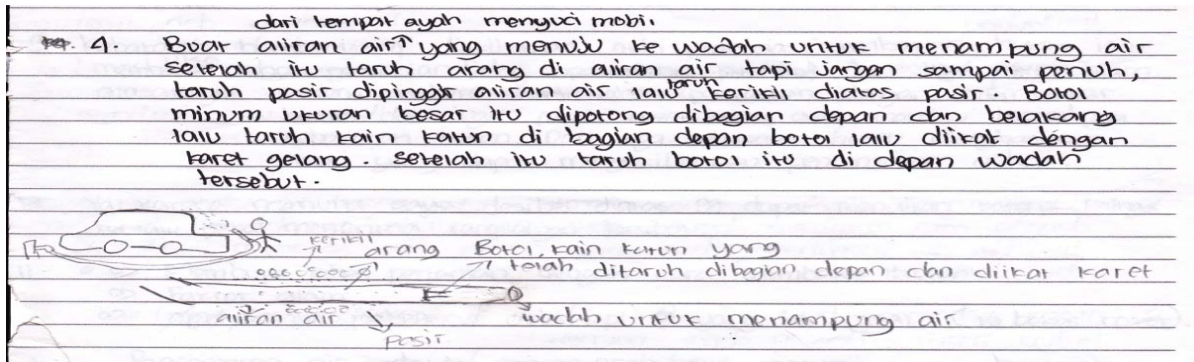 dari tempat ayah menyuci mobil
4. Buat aliran air yang menuju ke wadah untuk menampung air
setelah itu taruh arang di aliran air tapi jangan sampai penuh,
taruh pasir dipinggir aliran air lalu taruh kerikil diatas pasir. Botol
minum ukuran besar itu dipotong dibagian depan dan belakang
lalu taruh kain katun di bagian depan botol lalu diikat dengan
karet gelang. setelah itu taruh botol itu di depan wadah
tersebut.
kerikil
arang Botol, kain katun yang
telah ditaruh dibagian depan dan diikat karet
aliran air
wadah untuk menampung air
pasir